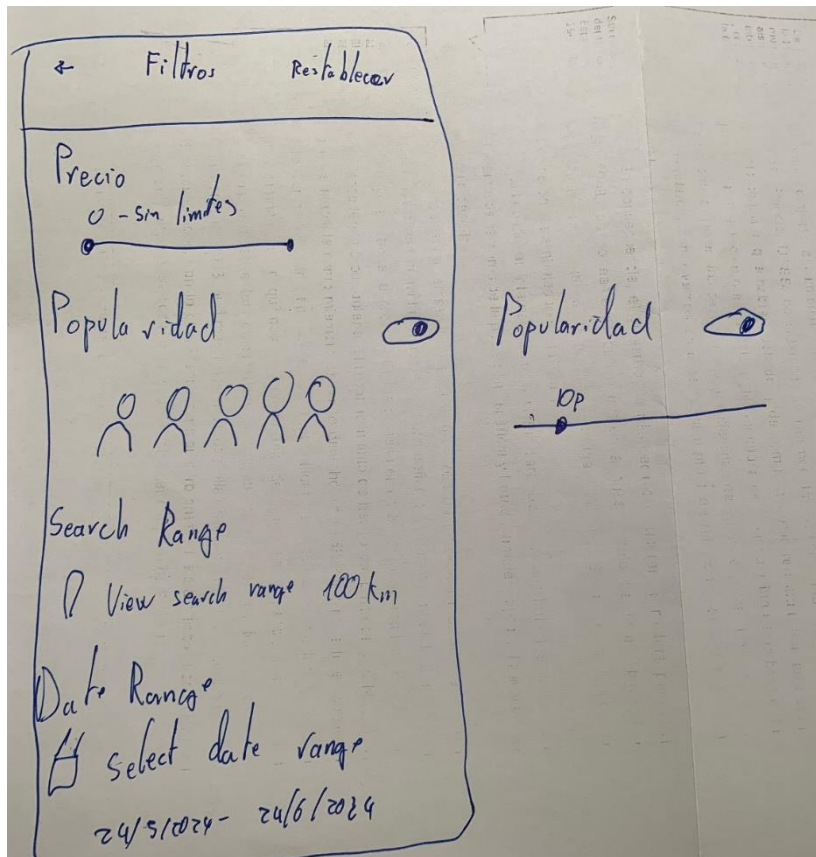 ← Filtros Restablecer
Precio
0 - sin limites
Popularidad
Search Range
View search range 100 km
Date Range
select date range
24/5/2024 - 24/6/2024
Popularidad
10p